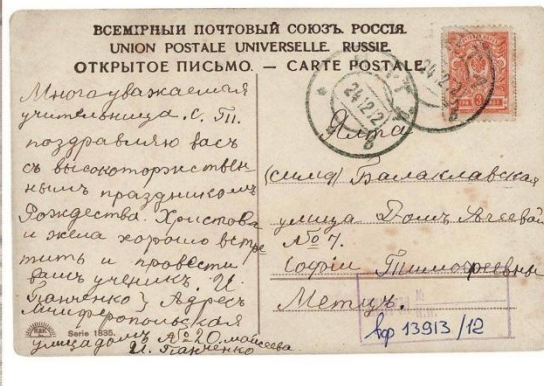 ВСЕМІРНЫЙ ПОЧТОВЫЙ СОЮЗЪ. РОССІЯ.
UNION POSTALE UNIVERSELLE. RUSSIE.
ОТКРЫТОЕ ПИСЬМО. — CARTE POSTALE.
Многоуважаемый
учительница. С. Ти.
поздравляю васъ
съ высокоторжествен
нымъ праздникомъ
Рождества Христова
и жела хорошо встре
тить и провести
вашъ ученикъ. И.
Панченко} Адресъ
Симферопольская
улица домъ № 20 моисеева
И. Панченко
Serie 1835.
24.12.2
24.12.2
Ялта
(симф) Балаклавская
улица Домъ
№ 7.
Софіи Тимофеевны
Метцъ.
вф 13913/12